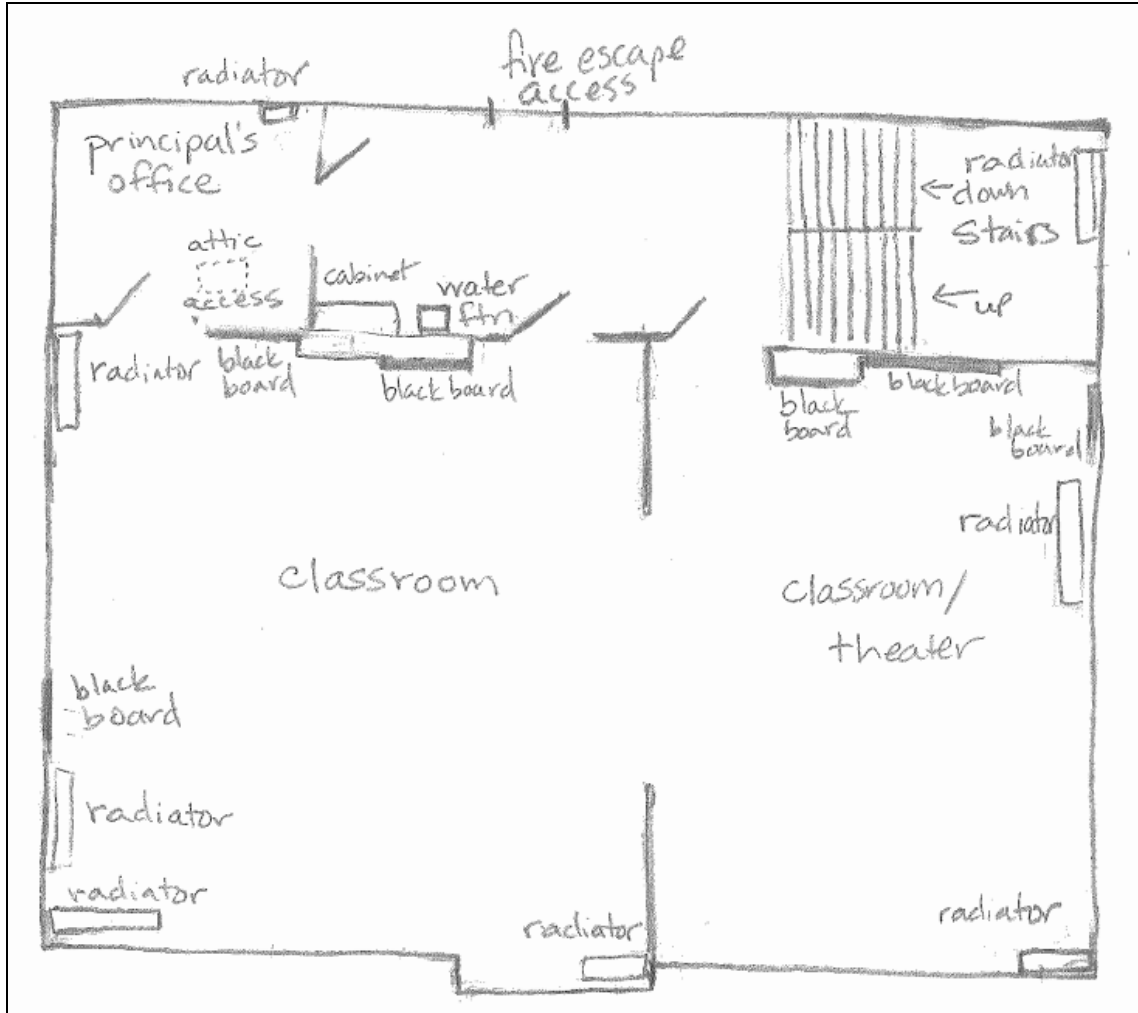 fire escape
access
radiator
principal's
office
radiator
down
stairs
up
attic
access
cabinet
water
ftn
radiator
black
board
black board
black
board
blackboard
black
board
radiator
classroom
classroom/
theater
black
board
radiator
radiator
radiator
radiator